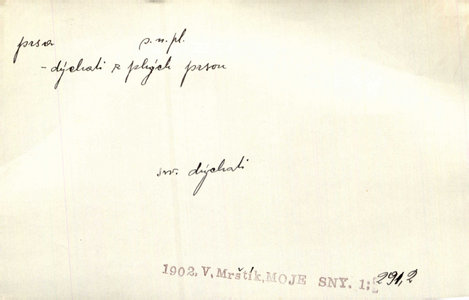 prsa s. n. pl.
- dýchati z plných prsou
srv. dýchati
1902, V, Mrštík, MOJE SNY. 1; 291,2